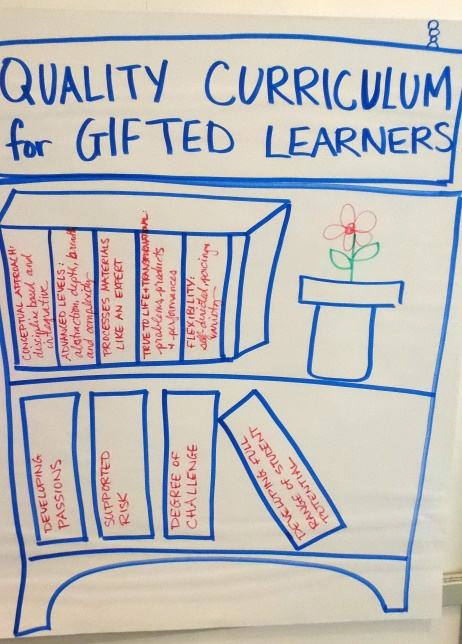 QUALITY CURRICULUM
for GIFTED LEARNERS
CONCEPTUAL APPROACH:
discipline based and
integrative
ADVANCED LEVELS:
abstraction, depth, breadth
and complexity
PROCESSES MATERIALS
LIKE AN EXPERT
TRUE TO LIFE + TRANSFORMATIONAL:
problems - products
+ performances
FLEXIBILITY:
self-directed, pacing
variety
DEVELOPING
PASSIONS
SUPPORTED
RISK
DEGREE OF
CHALLENGE
DEVELOPING FULL
RANGE OF STUDENT
POTENTIAL